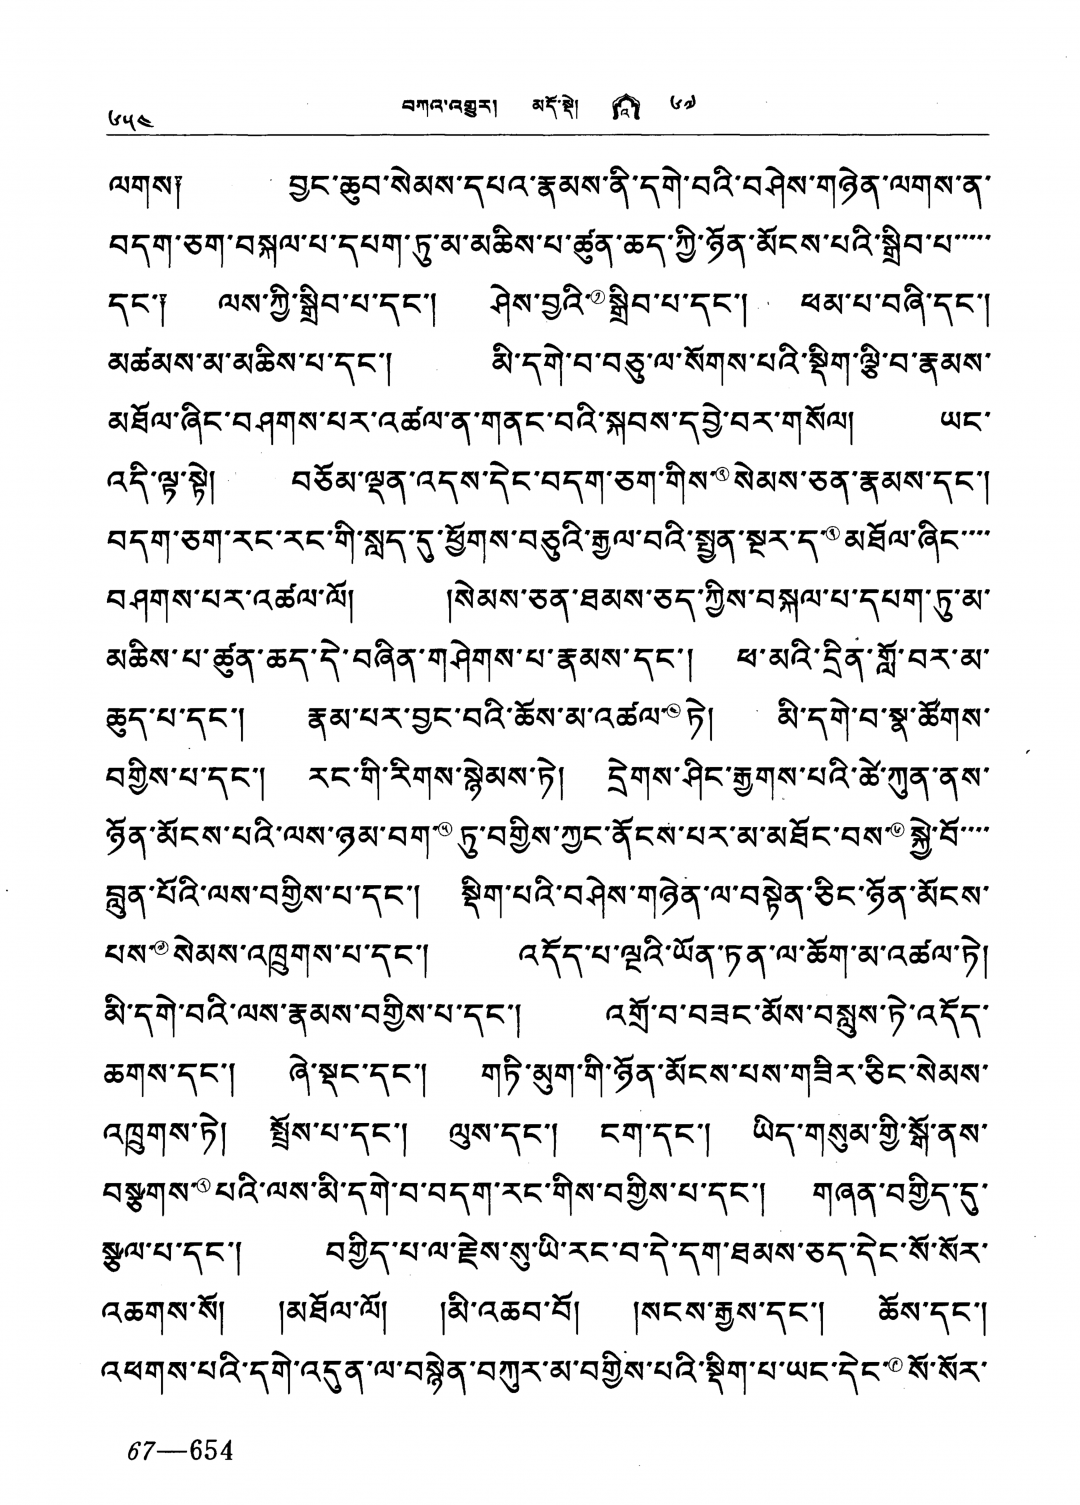 ༦༥༤ བཀའ་འགྱུར། མདོ་སྡེ། ༦༧
ལགས༑ བྱང་ཆུབ་སེམས་དཔའ་རྣམས་ནི་དགེ་བའི་བཤེས་གཉེན་ལགས་ན་
བདག་ཅག་བསྐལ་པ་དཔག་ཏུ་མ་མཆིས་པ་ཚུན་ཆད་ཀྱི་ཉོན་མོངས་པའི་སྒྲིབ་པ་་་་་
དང་༑ ལས་ཀྱི་སྒྲིབ་པ་དང་། ཤེས་བྱའི་①སྒྲིབ་པ་དང་། ཕམ་པ་བཞི་དང་།
མཚམས་མ་མཆིས་པ་དང་། མི་དགེ་བ་བཅུ་ལ་སོགས་པའི་སྡིག་ལྕི་བ་རྣམས་
མཐོལ་ཞིང་བཤགས་པར་འཚལ་ན་གནང་བའི་སྐབས་དབྱེ་བར་གསོལ། ཡང་
འདི་ལྟ་སྟེ། བཅོམ་ལྡན་འདས་དེང་བདག་ཅག་གིས་②སེམས་ཅན་རྣམས་དང་།
བདག་ཅག་རང་རང་གི་སླད་དུ་ཕྱོགས་བཅུའི་རྒྱལ་བའི་སྤྱན་སྔར་ད་③མཐོལ་ཞིང་་་་
བཤགས་པར་འཚལ་ལོ། །སེམས་ཅན་ཐམས་ཅད་ཀྱིས་བསྐལ་པ་དཔག་ཏུ་མ་
མཆིས་པ་ཚུན་ཆད་དེ་བཞིན་གཤེགས་པ་རྣམས་དང་། ཕ་མའི་དྲིན་གློ་བར་མ་
ཆུད་པ་དང་། རྣམ་པར་བྱང་བའི་ཆོས་མ་འཚལ་④ཏེ། མི་དགེ་བ་སྣ་ཚོགས་
བགྱིས་པ་དང་། རང་གི་རིགས་སྙེམས་ཏེ། དྲེགས་ཤིང་རྒྱགས་པའི་ཚེ་ཀུན་ནས་
ཉོན་མོངས་པའི་ལས་ཉམ་བག་⑤ཏུ་བགྱིས་ཀྱང་ནོངས་པར་མ་མཐོང་བས་⑥སྐྱེ་བོ་་་་
བླུན་པོའི་ལས་བགྱིས་པ་དང་། སྡིག་པའི་བཤེས་གཉེན་ལ་བསྟེན་ཅིང་ཉོན་མོངས་
པས་⑦སེམས་འཁྲུགས་པ་དང་། འདོད་པ་ལྔའི་ཡོན་ཏན་ལ་ཆོག་མ་འཚལ་ཏེ།
མི་དགེ་བའི་ལས་རྣམས་བགྱིས་པ་དང་། འགྲོ་བ་བཟང་མོས་བསླུས་ཏེ་འདོད་
ཆགས་དང་། ཞེ་སྡང་དང་། གཏི་མུག་གི་ཉོན་མོངས་པས་གཟིར་ཅིང་སེམས་
འཁྲུགས་ཏེ། སྤྲོས་པ་དང་། ལུས་དང་། ངག་དང་། ཡིད་གསུམ་གྱི་སྒོ་ནས་
བསྩགས་⑧པའི་ལས་མི་དགེ་བ་བདག་རང་གིས་བགྱིས་པ་དང་། གཞན་བགྱིད་དུ་
སྩལ་པ་དང་། བགྱིད་པ་ལ་རྗེས་སུ་ཡི་རང་བ་དེ་དག་ཐམས་ཅད་དེང་སོ་སོར་
འཆགས་སོ། །མཐོལ་ལོ། །མི་འཆབ་བོ། །སངས་རྒྱས་དང་། ཆོས་དང་།
འཕགས་པའི་དགེ་འདུན་ལ་བསྙེན་བཀུར་མ་བགྱིས་པའི་སྡིག་པ་ཡང་དེང་⑨སོ་སོར་
67—654